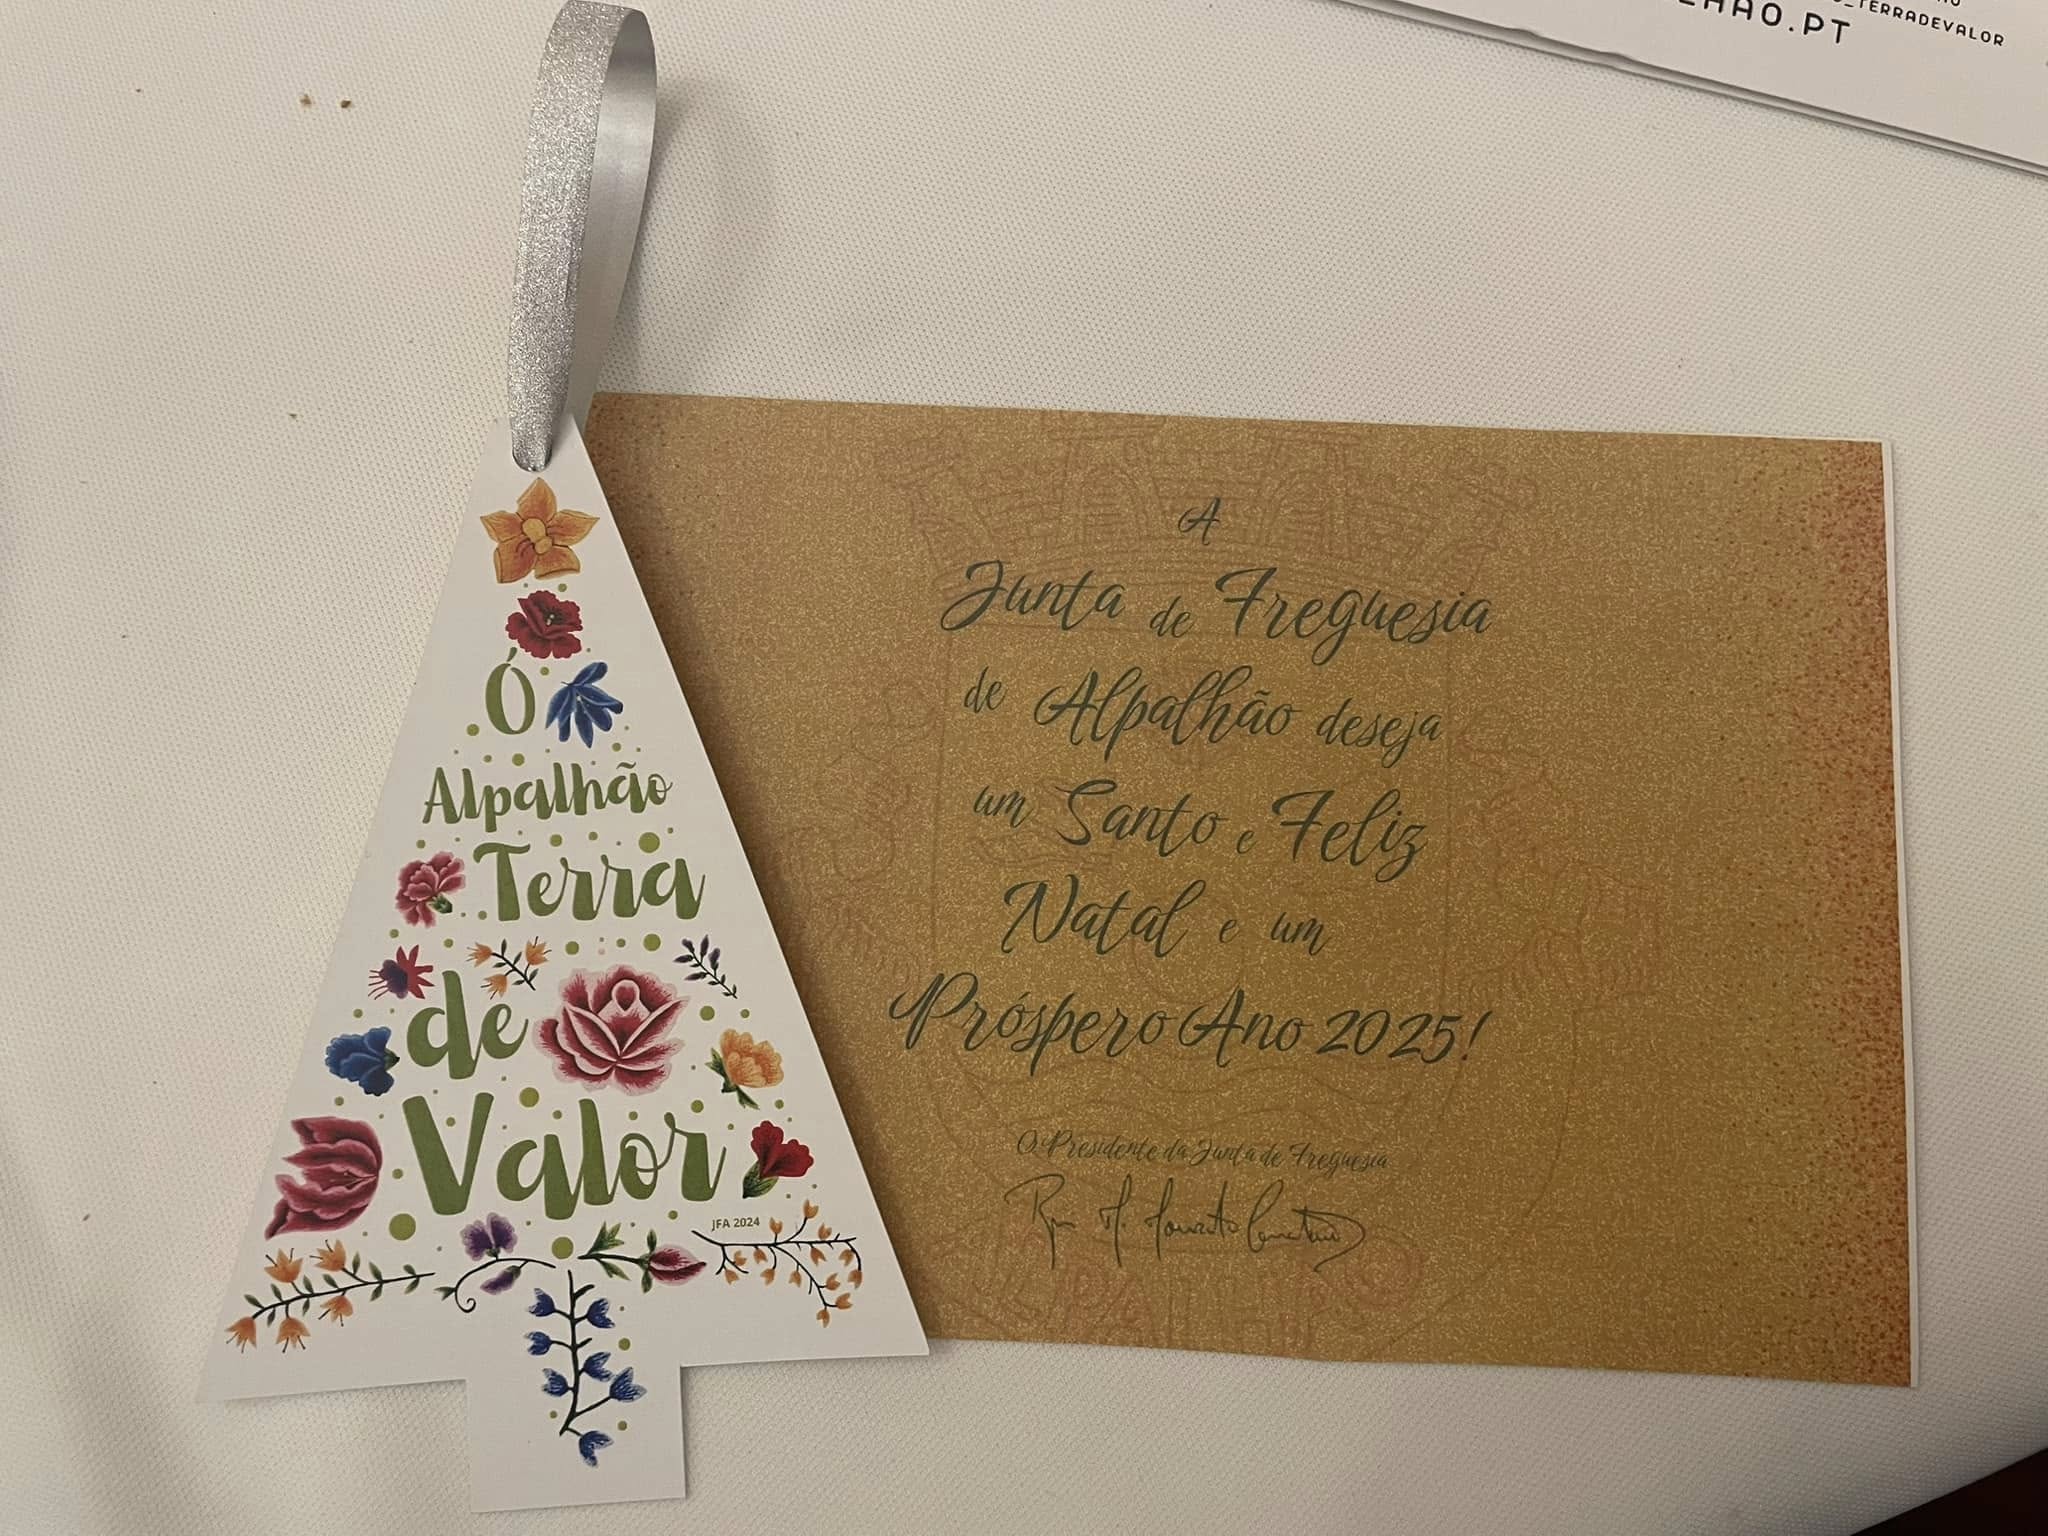 LHAO.PT
_TERRADEVALOR
Ó
Alpalhão
Terra
de
Valor
JFA 2024
A
Junta de Freguesia
de Alpalhão deseja
um Santo e Feliz
Natal e um
Próspero Ano 2025!
O Presidente da Junta de Freguesia